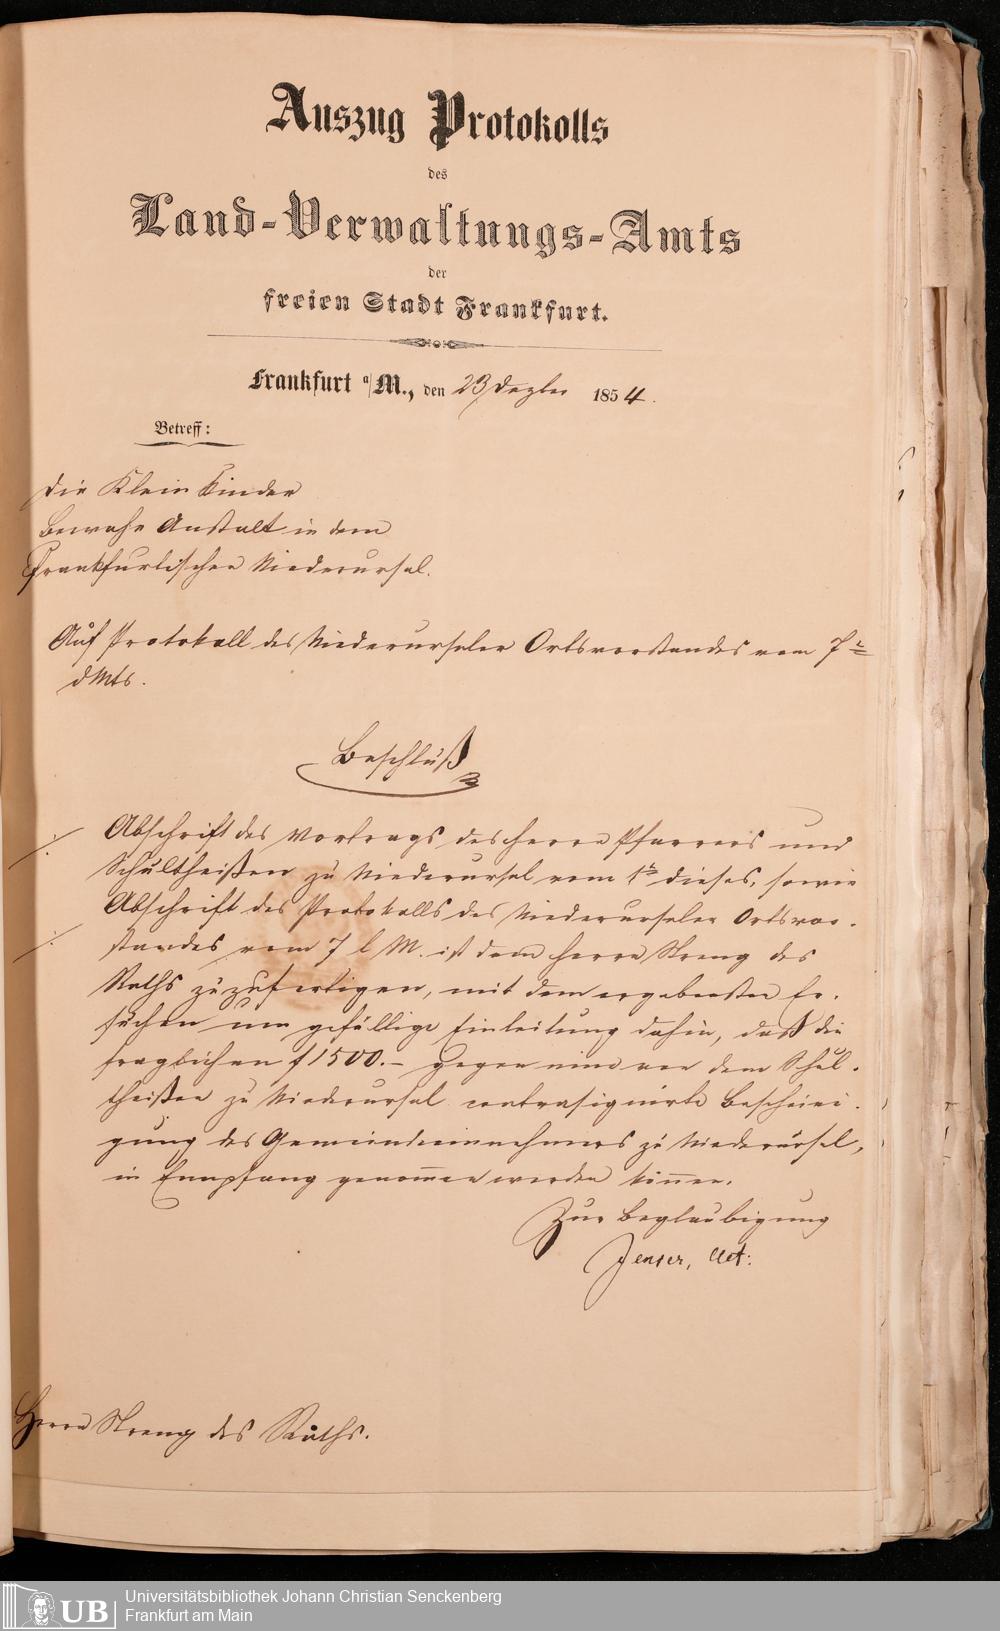 Auszug Protokolls
des
Land-Verwaltungs-Amts
der
freien Stadt Frankfurt.
Frankfurt a/M., den 23 Dezbr 1854.
Betreff:
Die Klein Kinder
Bewahr Anstalt in dem
Frankfurtischen Niederursel.
Auf Protokoll des Niederurseler Ortsvorstandes vom 7r
d Mts.
Beschluß
./. Abschrift des Vortrags des Herrn Pfarrers und
Schultheißen zu Niederursel vom 1r dieses, sowie
Abschrift des Protokolls des Niederurseler Ortsvor-
./. standes vom 7 l M. ist dem Herrn Streng des
Raths zuzufertigen, mit dem ergebensten Er-
suchen um gefällige Einleitung dahin, daß die
fraglichen f 1500.- gegen eine von dem Schul-
theißen zu Niederursel contrasignirte Bescheini-
gung des Gemeindeeinnehmers zu Niederursel,
in Empfang genommen werden können.
Zur Beglaubigung
Act:
Herrn Streng des Raths.
UB
Universitätsbibliothek Johann Christian Senckenberg
Frankfurt am Main